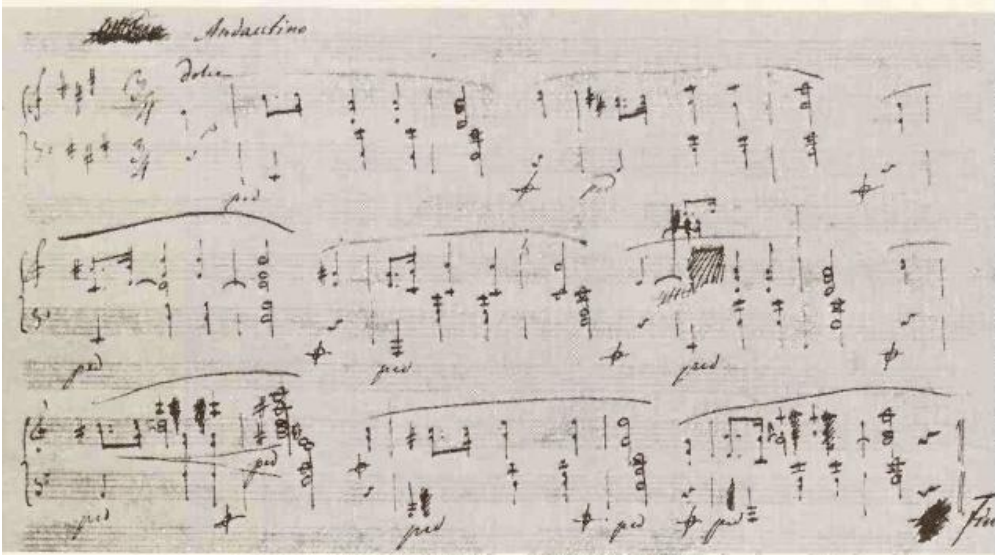 Andantino
dolce
ped ped
ped ped ped
ped
ped ped ped ped
Fine